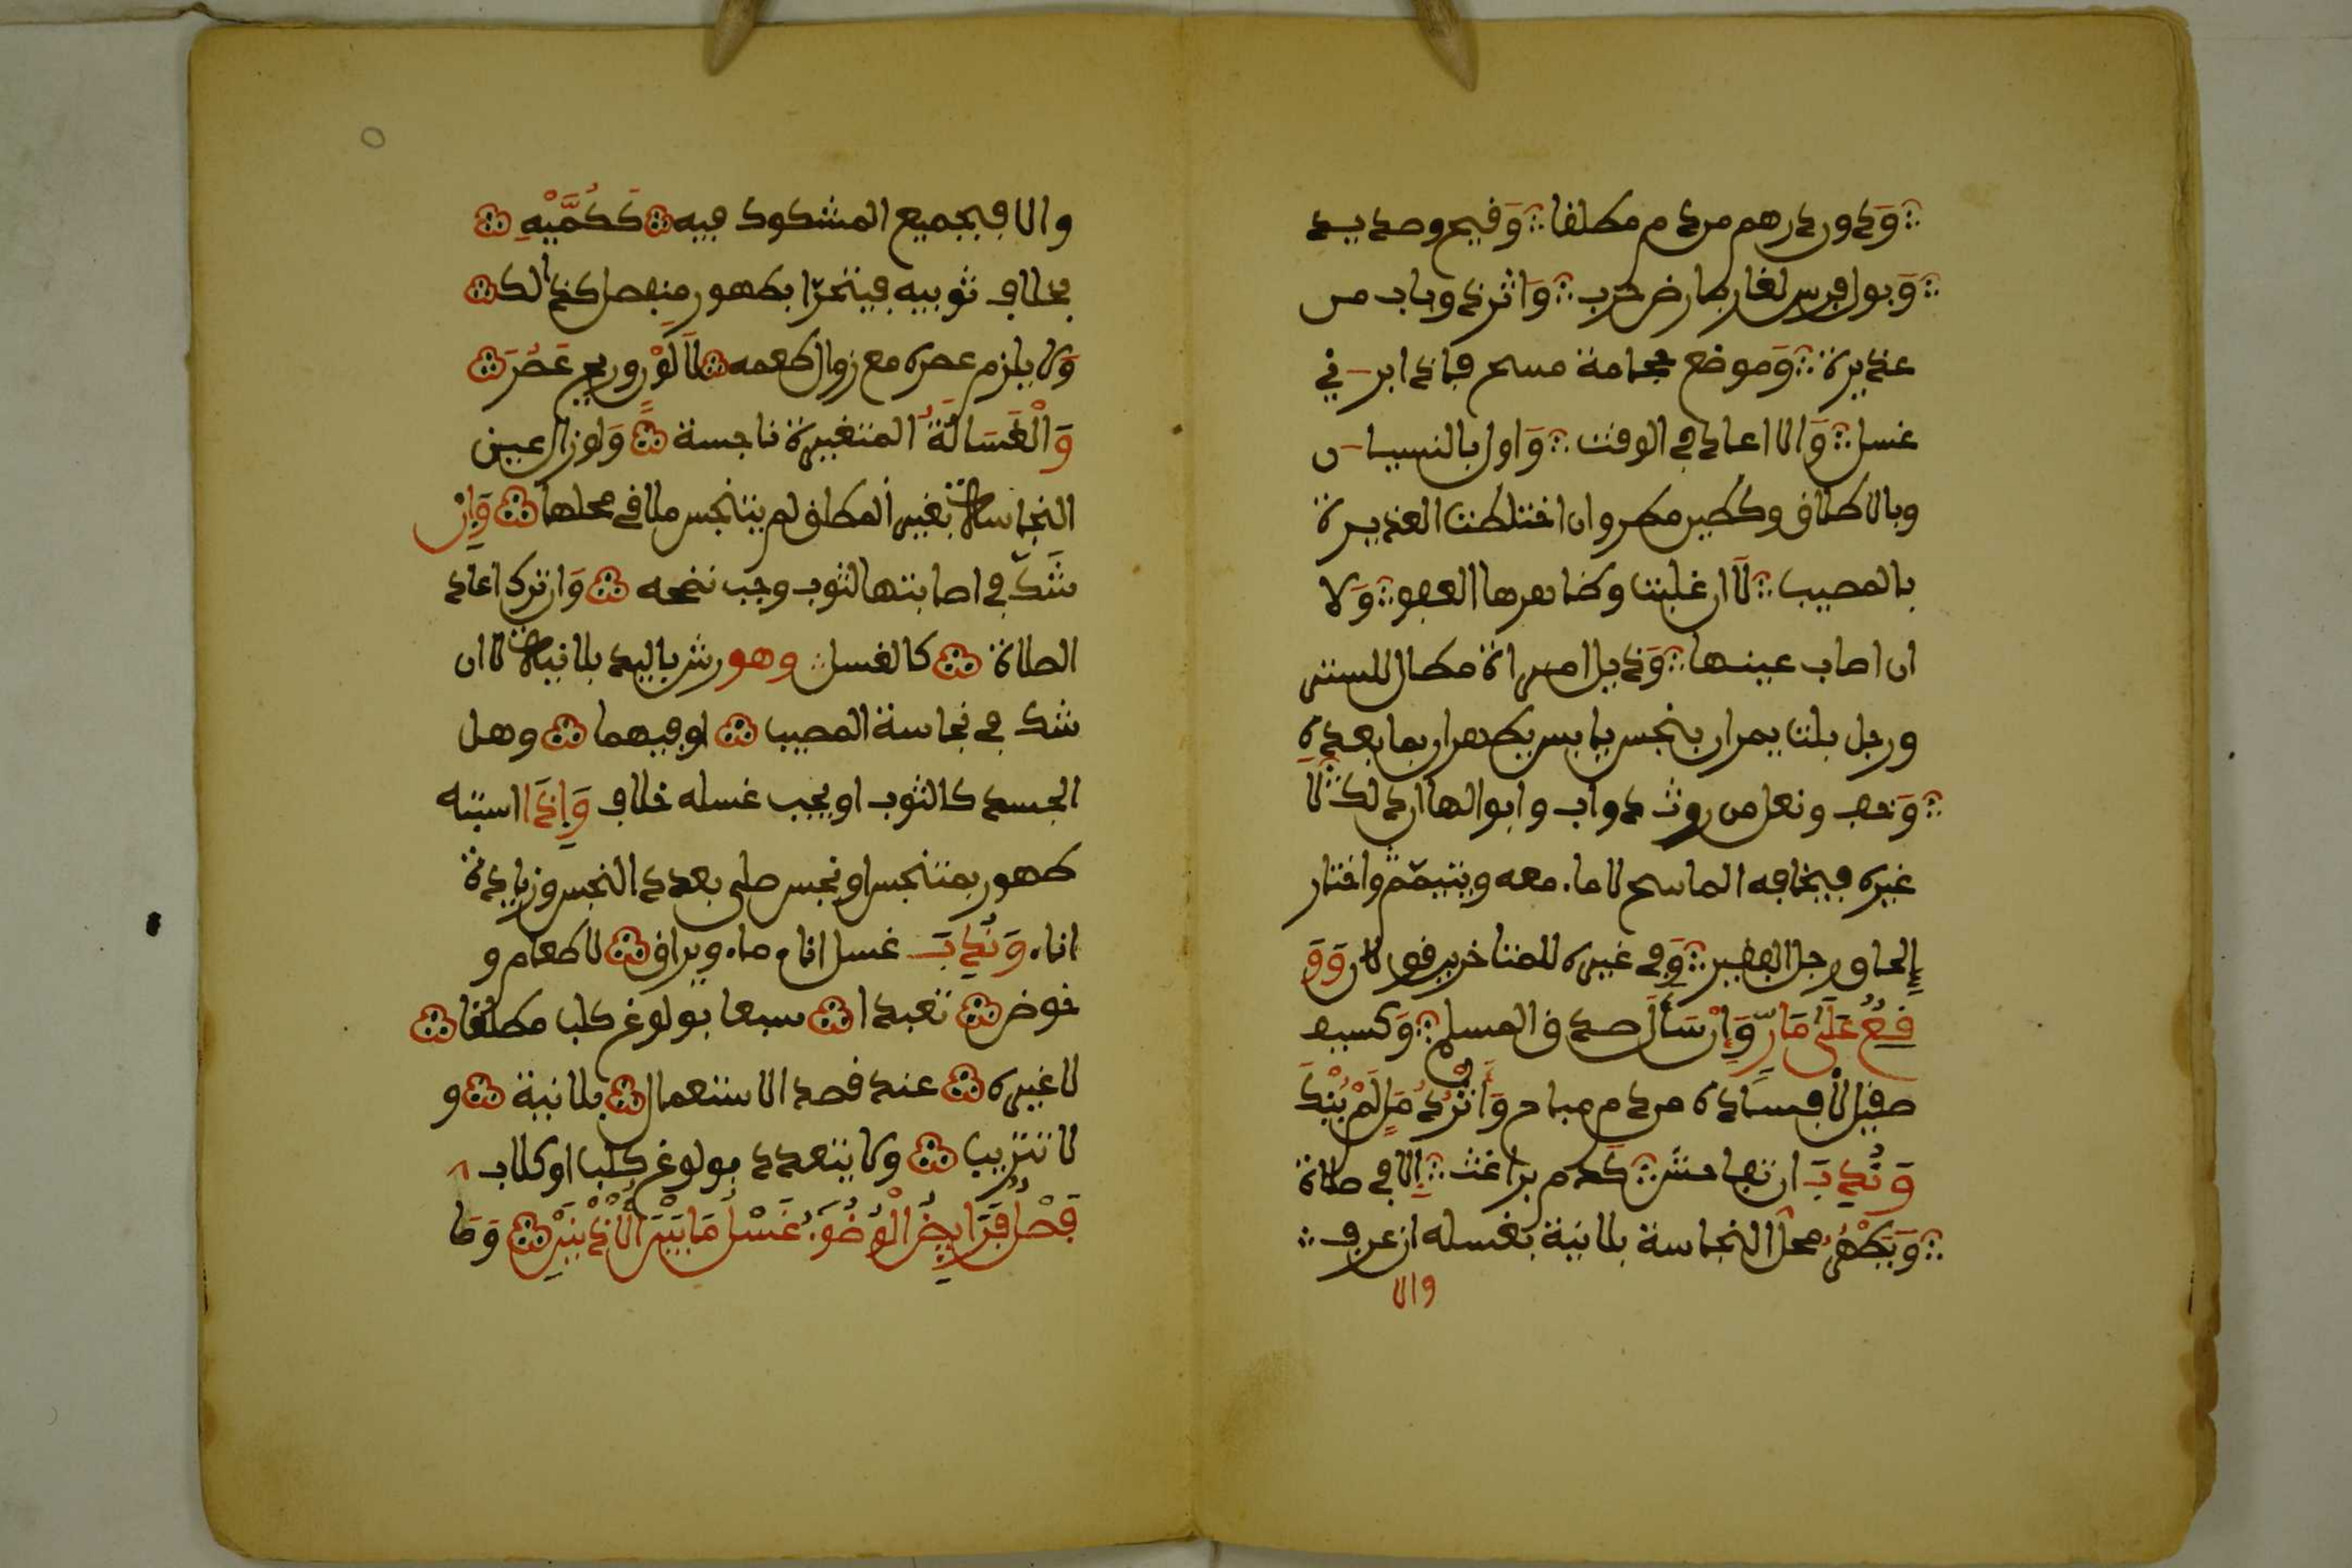 ودون درهم من دم مطلقا وقيح وصديد
وبول فرس لغاز بارض حرب واثر ذباب من
عذيرة وموضع حجامة مسح فاذا ابر ي
غسل والا اعاد في الوقت واول بالنسيان
وبالاطلاق وكطين مطر وان اختلطت العذيرة
بالمصيب لا ان غلبت وظاهرها العفو ولا
ان اصاب عينها وذيل امراة مطال للستر
ورجل بلت يمران بنجس يابس يطهران بما بعده
وخف ونعل من روث دواب وابوالها ان دلك لا
غيره فيخلعه الماسح لا ماء معه ويتيمم واختار
الحاق رجل الفقير وفي غيره للمتاخرين قولان وو
قع على مار وان سأل صدق المسلم وكسيف
صقيل لافساده من دم مباح واثر دمل لم ينك
وندب ان تفاحش كدم براغث الا في صلاة
ويطهر محل النجاسة بلا نية بغسله ان عرف
والا
والا فبجميع المشكوك فيه ككميه
بخلاف ثوبيه فيتحرا بطهور منفصل كذالك
ولا يلزم عصره مع زوال طعمه لا لون وريح عسر
والغسالة المتغيرة ناجسة ولو زال عين
النجاسة بغير المطلق لم يتنجس ملاقي محلها وان
شك في اصابتها لثوب وجب نضحه وان ترك اعاد
الصلاة كالغسل وهو رش باليد بلا نية لا ان
شك في نجاسة المصيب او فيهما وهل
الجسد كالثوب او يجب غسله خلاف واذا اشتبه
طهور بمتنجس او نجس صلى بعدد النجس وزيادة
اناء وندب غسل اناء ماء ويراق لا طعام و
حوض تعبدا سبعا بولوغ كلب مطلقا
لا غيره عند قصد الاستعمال بلا نية و
لا تتريب ولا يتعدد بولوغ كلب او كلاب
فصل فرايض الوضوء غسل ما بين الاذنين وما